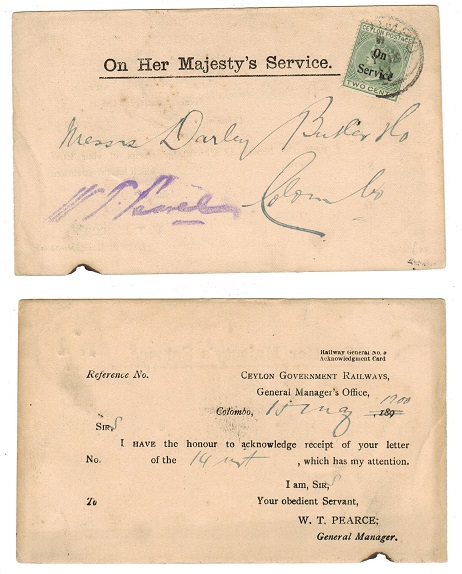 CEYLON POSTAGE
On
Service
TWO CENTS
On Her Majesty's Service.
Messrs Darley Butler & Co
Colombo
Railway General No.
Acknowledgment Card
Reference No.
CEYLON GOVERNMENT RAILWAYS,
General Manager's Office,
Colombo, 15 May 189 1900
SIRS
I HAVE the honour to acknowledge receipt of your letter
No. of the 14 inst , which has my attention.
I am, SIRS,
To Your obedient Servant,
W. T. PEARCE;
General Manager.